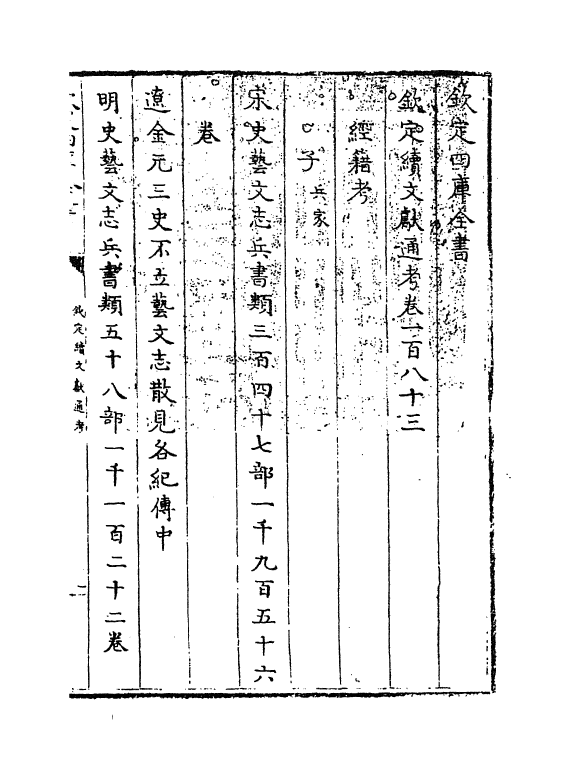 欽定四庫全書
欽定續文獻通考卷一百八十三
經籍考
子 兵家
宋史藝文志兵書類三百四十七部一千九百五十六
卷
遼金元三史不立藝文志散見各紀傳中
明史藝文志兵書類五十八部一千一百二十二卷
欽定續文獻通考